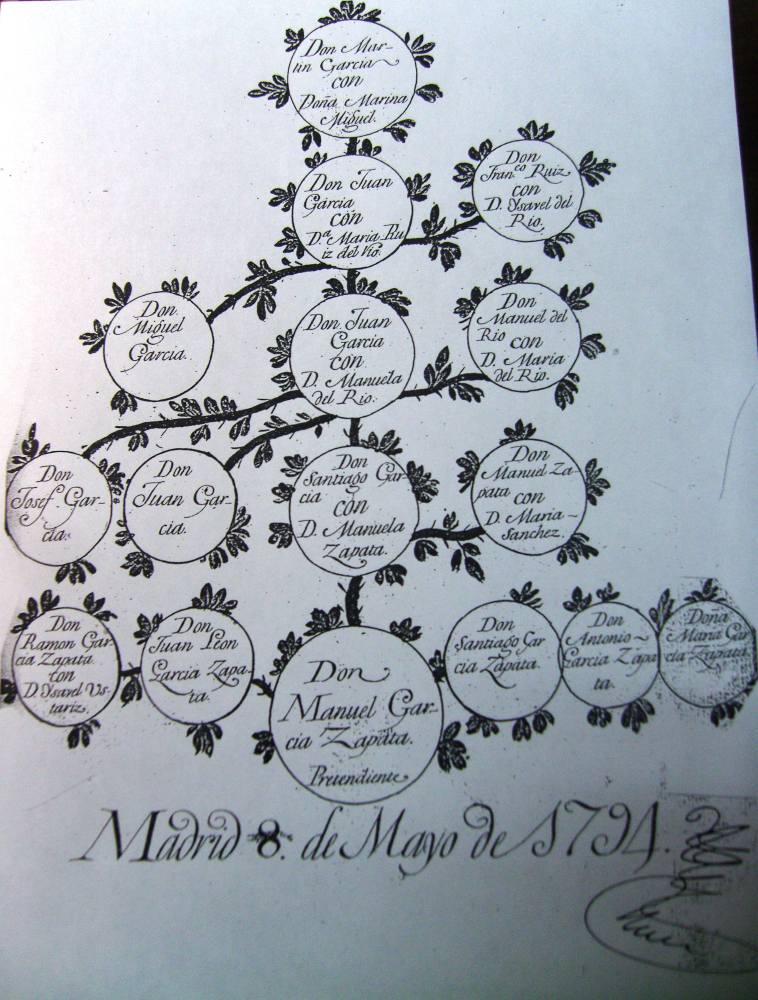 Don Mar-
tin Garcia
con
Doña Marina
Miguel.
Don Juan
Garcia
con
D.ª Maria Ru
iz del Rio.
Don
Fran.co Ruiz
con
D. Ysavel del
Rio.
Don
Miguel
Garcia.
Don Juan
Garcia
con
D. Manuela
del Rio.
Don
Manuel del
Rio
con
D. Maria
del Rio.
Don
Josef. Gar-
cia.
Don
Juan Gar-
cia.
Don
Santiago Gar
cia
con
D. Manuela
Zapata.
Don
Manuel Za-
pata
con
D. Maria
Sanchez.
Don
Ramon Gar
cia Zapata
con
D. Ysavel Us-
tariz.
Don
Juan Leon
Garcia Zapa-
ta.
Don
Manuel Gar-
cia Zapata.
Pretendiente.
Don
Santiago Gar
cia Zapata.
Don
Antonio
Garcia Zapa
ta.
Doña
Maria Gar
cia Zapata.
Madrid 8. de Mayo de 1794.